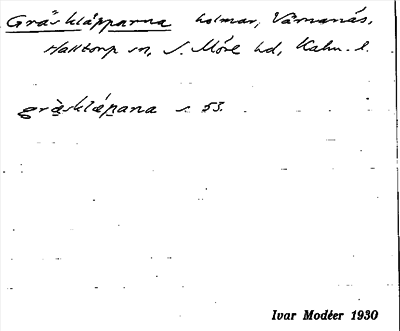 Gräskläpparna holmar, Värnanäs,
Halltorp sn, S. Möre hd, Kalm. l.
gräsklápana s. 53.
Ivar Modéer 1930